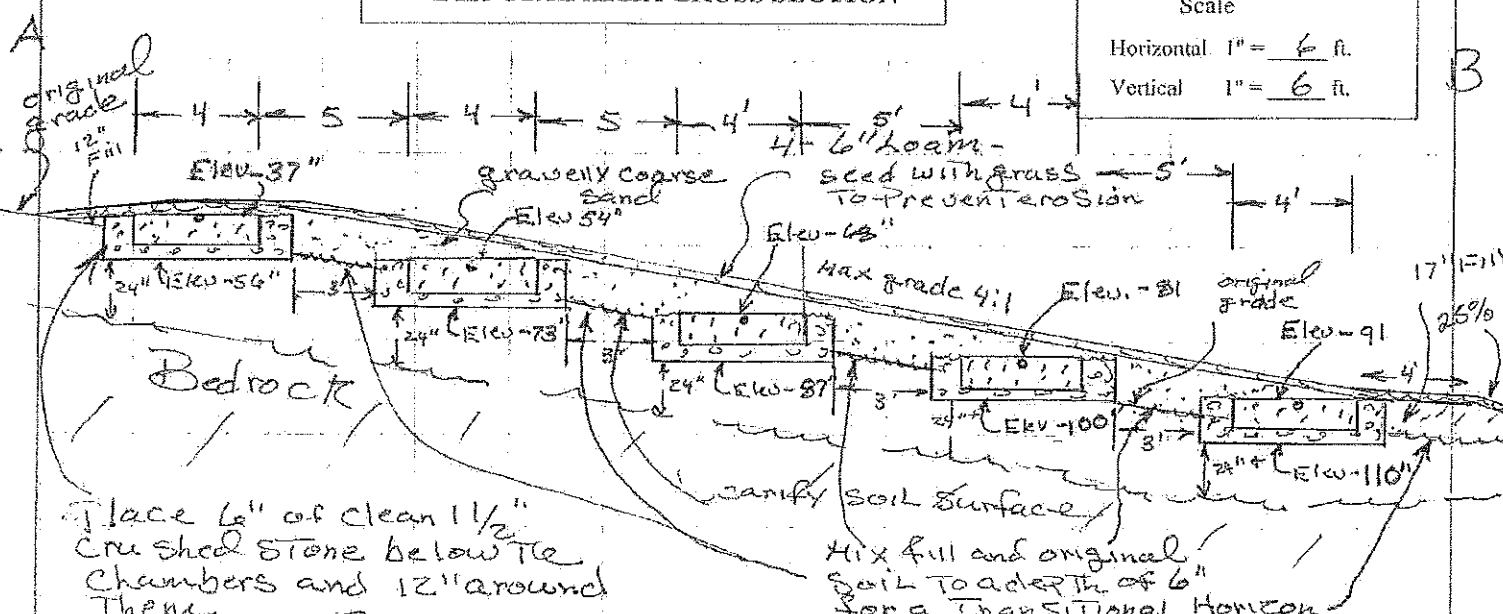 Scale
Horizontal 1" = 6 ft.
Vertical 1" = 6 ft.
A
B
original
grade
12"
Fill
4
5
4
5
4'
5'
4'
4-6" Loam-
seed with grass
To Prevent erosion
5'
4'
Elev-37"
gravelly coarse
sand
Elev 54"
Elev-68"
Max grade 4:1
Elev.-81
original
grade
Elev-91
17" Fill
25%
4'
24"
Elev-56"
3'
24"
Elev-73"
24"
Elev-87"
3'
24"+
Elev-100
3'
24"+
Elev-110"
Bedrock
scarify soil surface
Place 6" of clean 1 1/2"
Crushed Stone below The
Chambers and 12" around
Them
Mix fill and original
Soil To a depth of 6"
for a Transitional Horizon